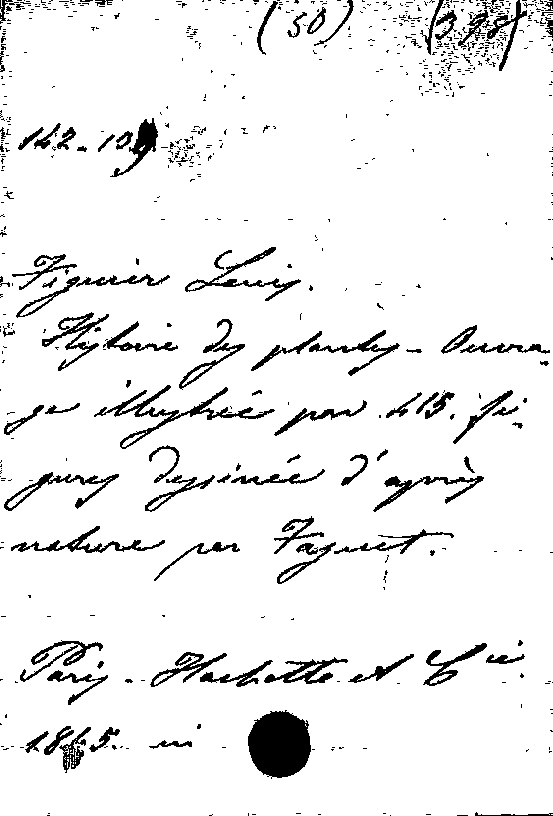 (50) (398)
142-109
Figuier Louis.
Histoire des plantes - Ouvra-
ge illustrée par 415. fi-
gures dessinée d'après
nature par Faguet.
Paris - Hachette et Cie.
1865. in